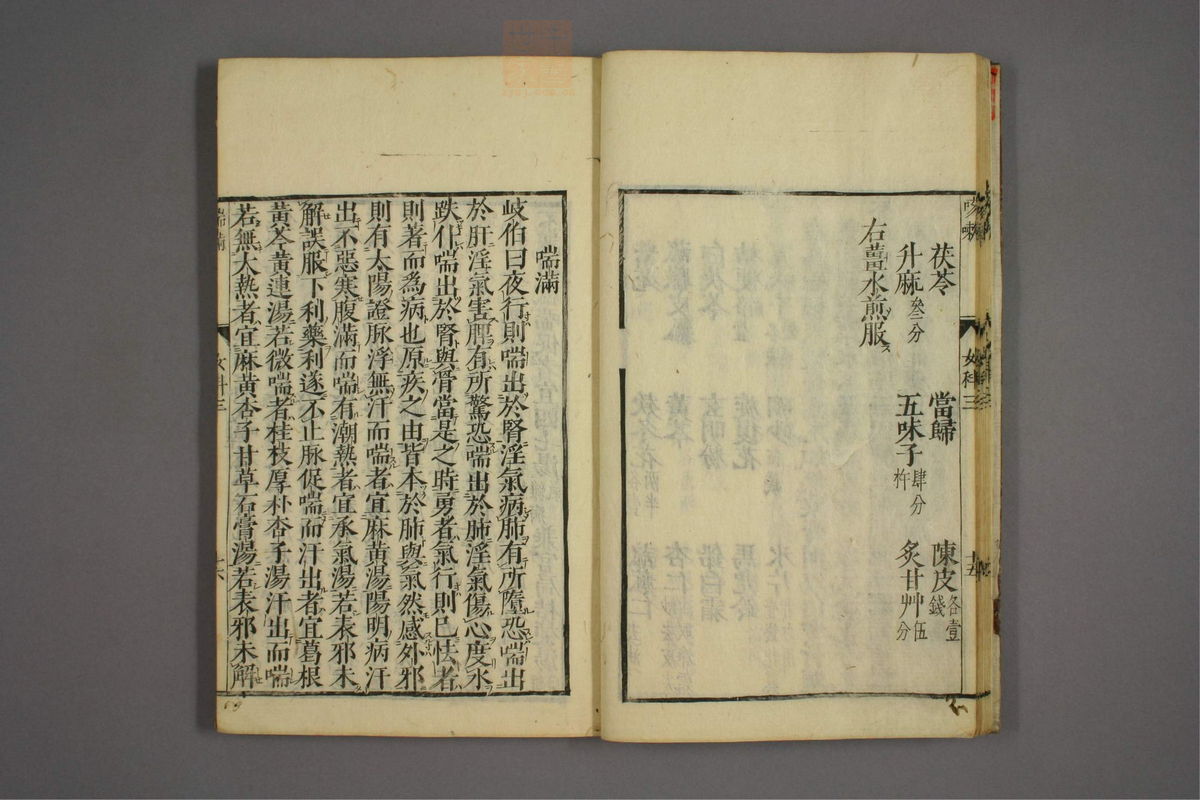 茯苓 當歸 陳皮各壹錢
升麻叄分 五味子肆分杵 炙甘艸伍分
右薑水煎服
女科三
喘滿
岐伯曰夜行則喘出於腎淫氣病肺有所墮恐喘出
於肝淫氣害脾有所驚恐喘出於肺淫氣傷心度水
跌仆喘出於腎與骨當是之時勇者氣行則已怯者
則著而爲病也原疾之由皆本於肺與氣然感外邪
則有太陽證脉浮無汗而喘者宜麻黃湯陽明病汗
出不惡寒腹滿而喘有潮熱者宜承氣湯若表邪未
解誤服下利藥利遂不止脉促喘而汗出者宜葛根
黃芩黃連湯若微喘者桂枝厚朴杏子湯汗出而喘
若無大熱者宜麻黃杏子甘草石膏湯若表邪未解
喘滿 女科三 十六